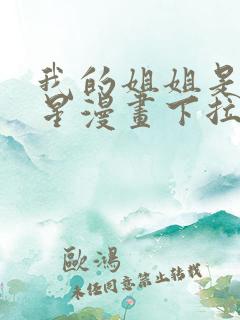 我的姐姐是
星漫畫下拉
歐鴻
未经同意禁止转载